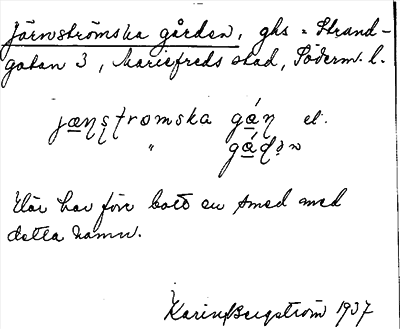 Järnströmska gården, ghs = Strand-
gatan 3, Mariefreds stad, Söderm. l.
jæ̱ɳʂʈrømska gá̱ɳ el.
" gá̱ɖən
Här har förr bott en smed med
detta namn.
Karin Bergström 1937